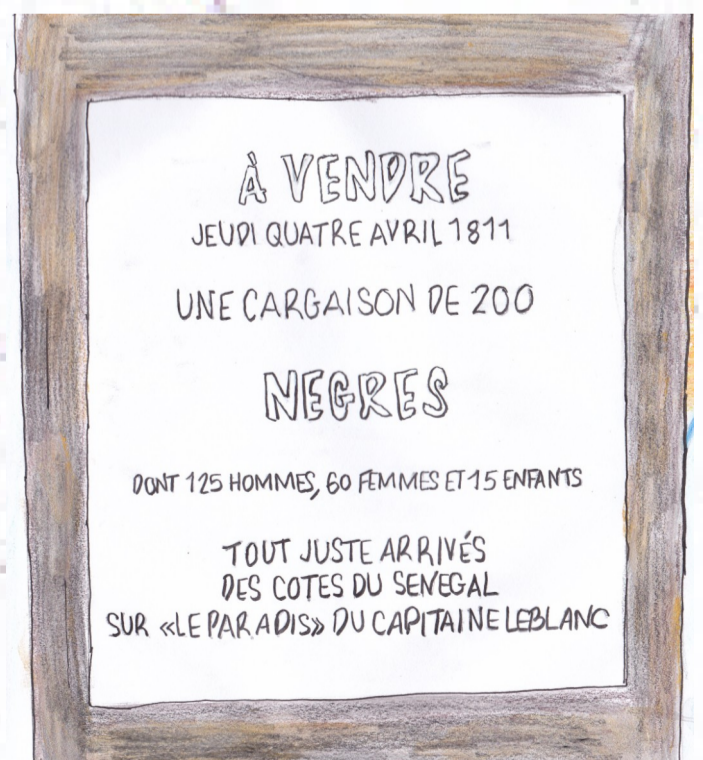 À VENDRE
JEUDI QUATRE AVRIL 1811
UNE CARGAISON DE 200
NEGRES
DONT 125 HOMMES, 60 FEMMES ET 15 ENFANTS
TOUT JUSTE ARRIVÉS
DES COTES DU SENEGAL
SUR «LE PARADIS» DU CAPITAINE LEBLANC